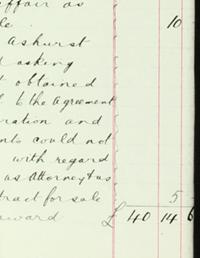 affair as
10
Ashurst
asking
obtained
to the Agreement
eration and
ents could not
with regard
as Attorney to us
5
tract for sale
£ 40 14 6